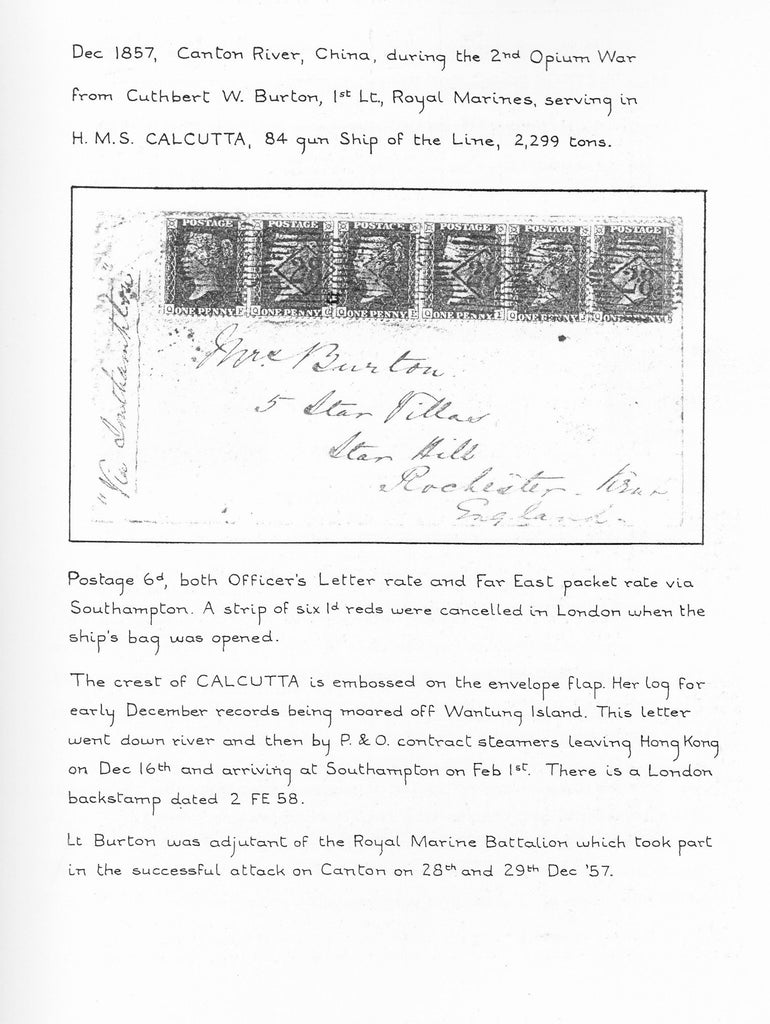 Dec 1857, Canton River, China, during the 2nd Opium War
from Cuthbert W. Burton, 1st Lt., Royal Marines, serving in
H.M.S. CALCUTTA, 84 gun Ship of the Line, 2,299 tons.
POSTAGE POSTAGE POSTAGE POSTAGE POSTAGE POSTAGE
28 28 28
ONE PENNY ONE PENNY ONE PENNY ONE PENNY ONE PENNY ONE PENNY
"Via Southampton"
Mrs. Burton
5 Star Villas
Star Hill
Rochester - Kent
England -
Postage 6d, both Officer's Letter rate and Far East packet rate via
Southampton. A strip of six 1d reds were cancelled in London when the
ship's bag was opened.
The crest of CALCUTTA is embossed on the envelope flap. Her log for
early December records being moored off Wantung Island. This letter
went down river and then by P. & O. contract steamers leaving Hong Kong
on Dec 16th and arriving at Southampton on Feb 1st. There is a London
backstamp dated 2 FE 58.
Lt Burton was adjutant of the Royal Marine Battalion which took part
in the successful attack on Canton on 28th and 29th Dec '57.